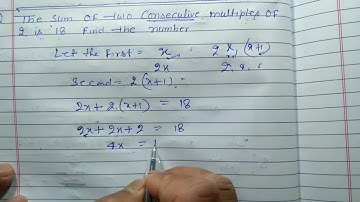 The Sum OF two Consecutive multiples OF
2 is 18 Find the number
Let the First = x 2 x, (x+1)
2x 2. 4.
Second = 2(x+1).
2x + 2.(x+1) = 18
2x + 2x + 2 = 18
4x = 1